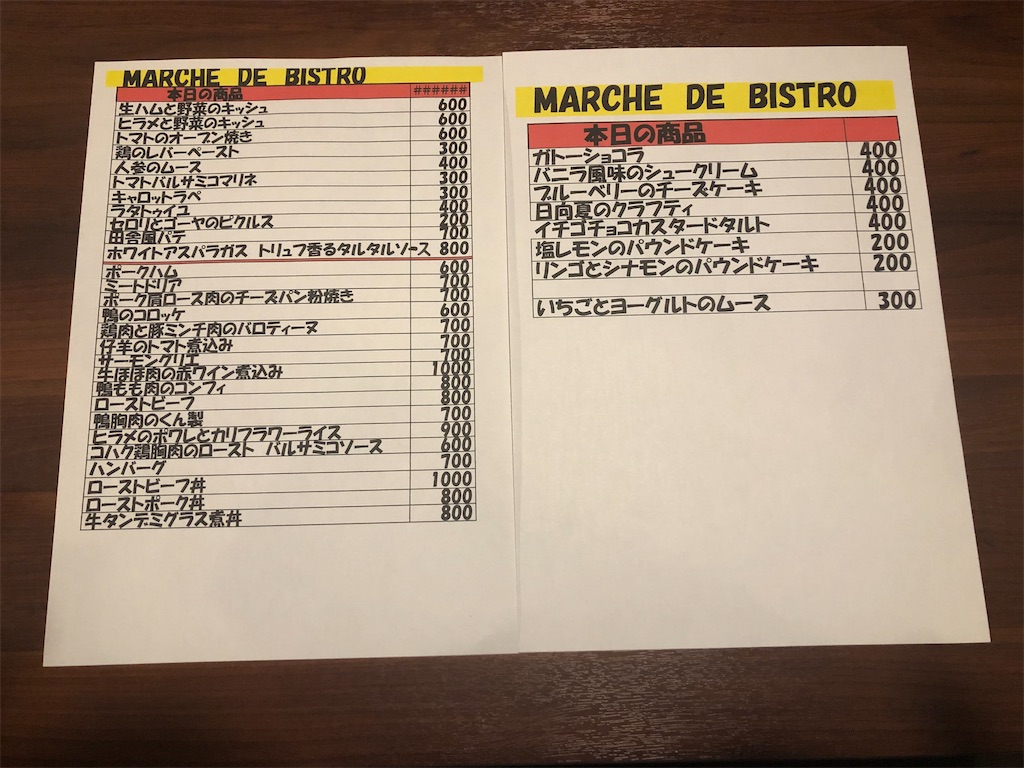 MARCHE DE BISTRO
本日の商品 ######
生ハムと野菜のキッシュ 600
ヒラメと野菜のキッシュ 600
トマトのオーブン焼き 600
鶏のレバーペースト 300
人参のムース 400
トマトバルサミコマリネ 300
キャロットラペ 300
ラタトゥイユ 400
セロリとゴーヤのピクルス 200
田舎風パテ 700
ホワイトアスパラガス トリュフ香るタルタルソース 800
ポークハム 600
ミートドリア 700
ポーク肩ロース肉のチーズパン粉焼き 700
鴨のコロッケ 600
鶏肉と豚ミンチ肉のバロティーヌ 700
仔羊のトマト煮込み 700
サーモングリエ 700
牛ほほ肉の赤ワイン煮込み 1000
鴨もも肉のコンフィ 800
ローストビーフ 800
鴨胸肉のくん製 700
ヒラメのポワレとカリフラワーライス 900
コハク鶏胸肉のロースト バルサミコソース 600
ハンバーグ 700
ローストビーフ丼 1000
ローストポーク丼 800
牛タンデミグラス煮丼 800
MARCHE DE BISTRO
本日の商品
ガトーショコラ 400
バニラ風味のシュークリーム 400
ブルーベリーのチーズケーキ 400
日向夏のクラフティ 400
イチゴチョコカスタードタルト 400
塩レモンのパウンドケーキ 200
リンゴとシナモンのパウンドケーキ 200
いちごとヨーグルトのムース 300